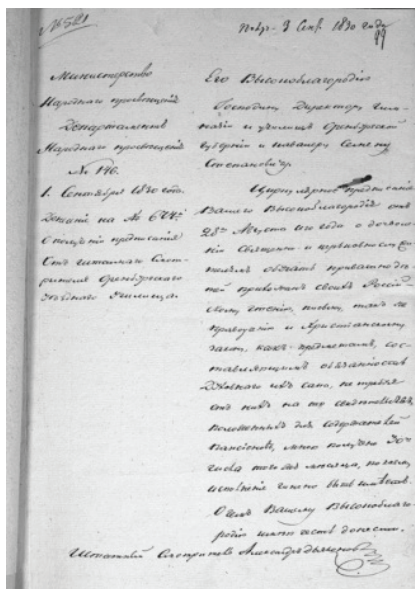 № 521
Получ. 3 Сент. 1830 года
99
Министерство
Народнаго просвещенія
Департаментъ
Народнаго просвещенія
№ 196.
1. Сентября 1830 года.
о полученіи предписанія
Отъ штатнаго Смот-
рителя Оренбургскаго
Уезднаго Училища.
Его Высокоблагородію
Господину Директору гим-
назіи и училищъ Оренбургской
Губерніи и кавалеру Семену
Степановичу.
Циркулярное предписаніе
Вашего Высокоблагородія отъ
28го Августа сего года о дозволе-
ніи Священно и церковнослу-
жителямъ обучать приватно де-
тей прихожанъ своихъ Россій-
скому чтенію, письму, такъ же
и Христіанскому
какъ предметамъ, сос-
тавляющимъ обязанность
Духовнаго ихъ сана, не требуя
отъ нихъ на то свидетельствъ,
положенныхъ для содержателей
Пансіоновъ, мною получено 30го
числа того же месяца, по коему
исполненіе чинено быть имеетъ.
О чемъ Вашему Высокоблаго-
родію имею честь донести.
Штатный Смотритель Александръ